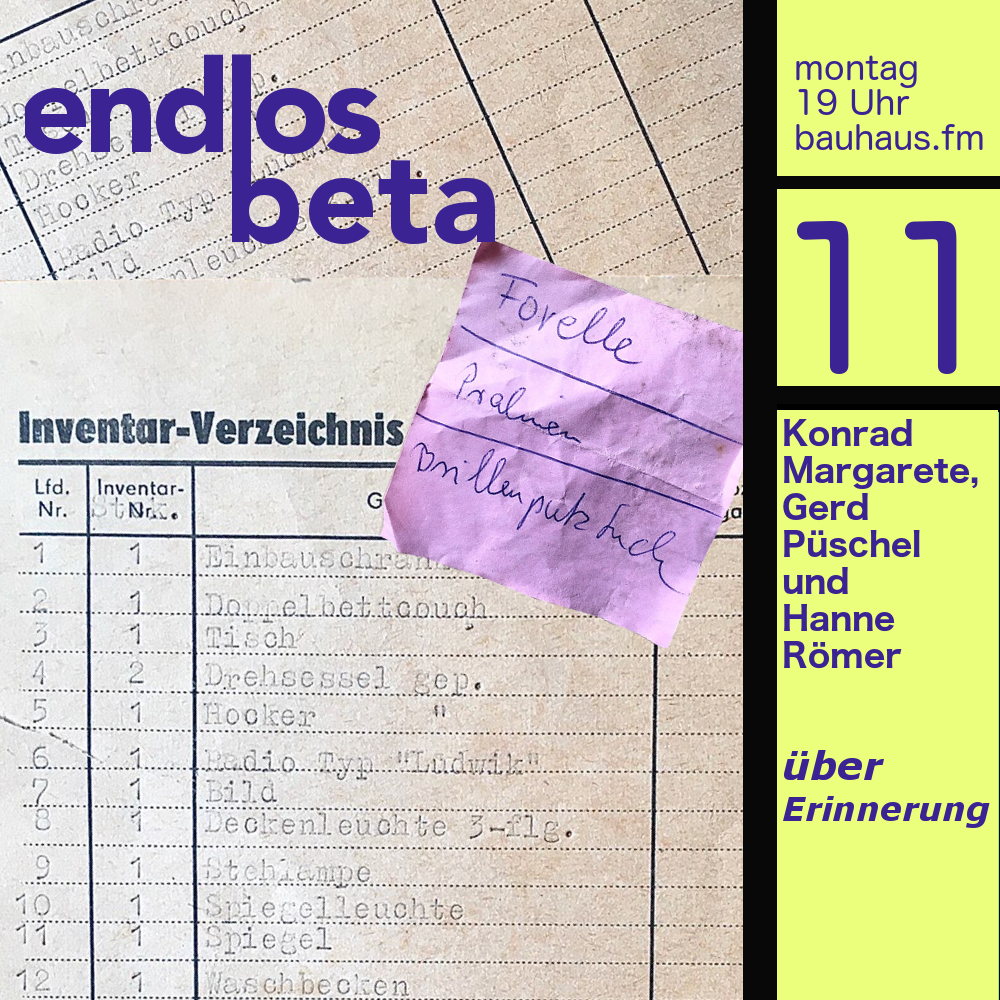 inbauschra
Doppelbettcouch
Drehses
Hocker
Radio Typ "Ludwi
Bild
enleuc
endlos
beta
montag
19 Uhr
bauhaus.fm
11
Konrad
Margarete,
Gerd
Püschel
und
Hanne
Römer
über
Erinnerung
Forelle
Pralinen
Brillenputztuch
Inventar-Verzeichnis
Lfd. Nr.
Inventar-Nr.
Stck.
G
1 1 Einbauschran
2 1 Doppelbettcouch
3 1 Tisch
4 2 Drehsessel gep.
5 1 Hocker "
6 1 Radio Typ "Ludwik"
7 1 Bild
8 1 Deckenleuchte 3-flg.
9 1 Stehlampe
10 1 Spiegelleuchte
11 1 Spiegel
12 1 Waschbecken